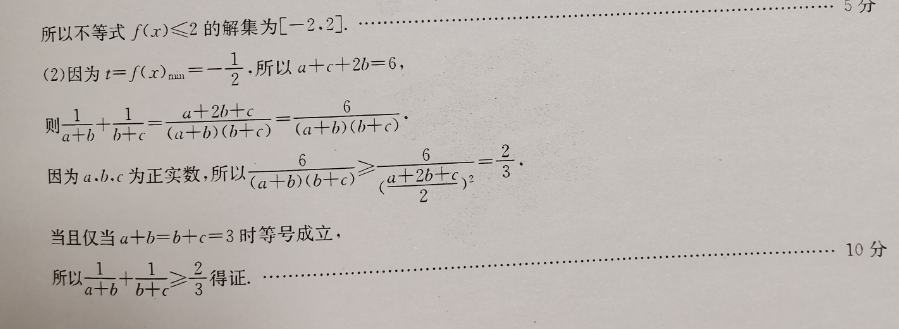 所以不等式 f(x)≤2 的解集为[-2,2]. ………………………… 5 分
(2)因为 t=f(x)min=-1/2,所以 a+c+2b=6,
则 1/(a+b)+1/(b+c)=(a+2b+c)/((a+b)(b+c))=6/((a+b)(b+c)).
因为 a,b,c 为正实数,所以 6/((a+b)(b+c))≥6/((a+2b+c)/2)²=2/3.
当且仅当 a+b=b+c=3 时等号成立,
所以 1/(a+b)+1/(b+c)≥2/3 得证. ………………………… 10 分